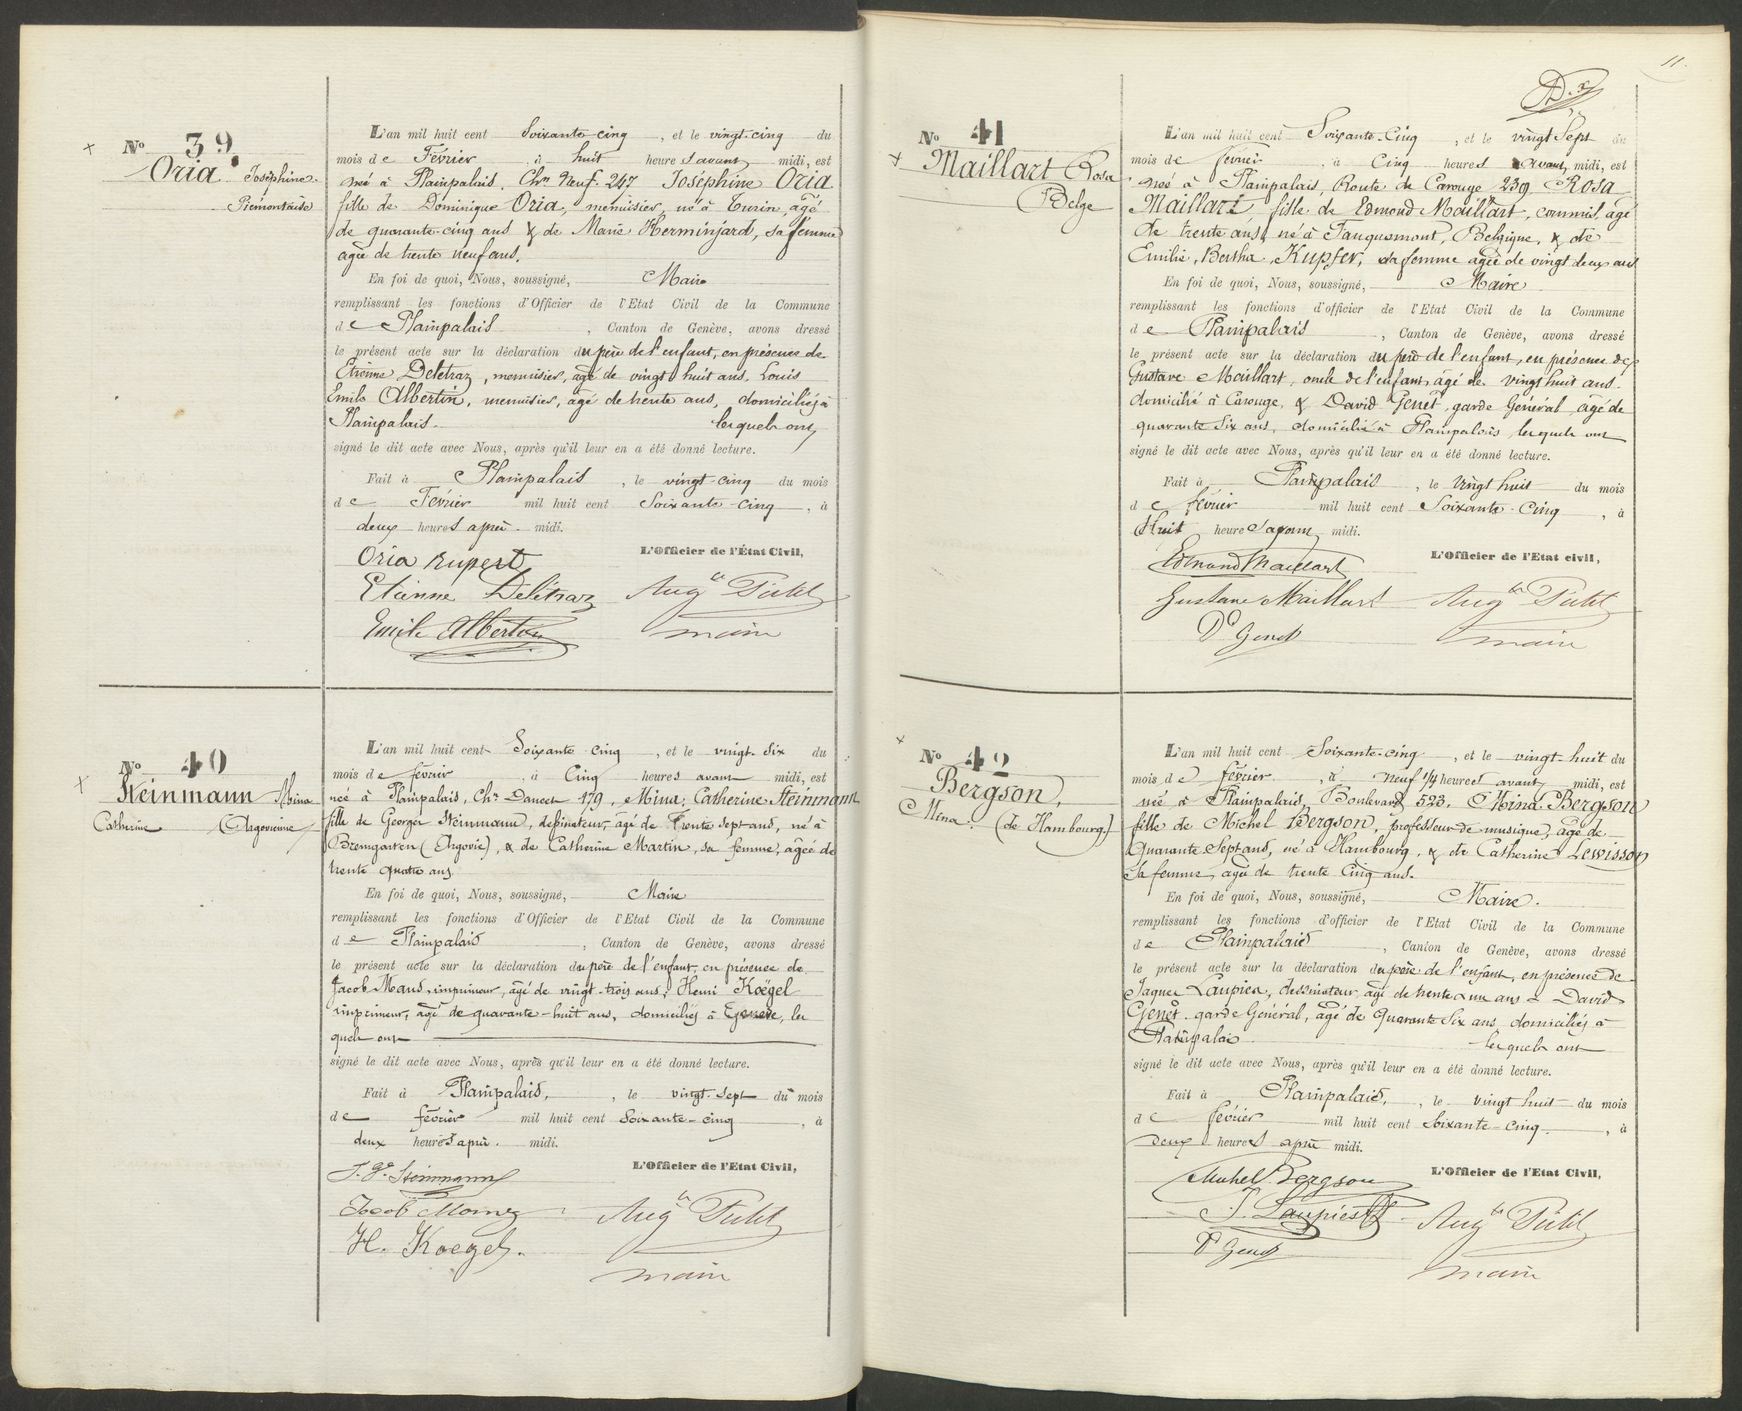 11.
N° 39
Oria Joséphine.
Piémontaise
L'an mil huit cent Soixante cinq, et le vingt-cinq du
mois de Février à huit heures avant midi, est
née à Plainpalais, Chn Neuf. 247 Joséphine Oria
fille de Dominique Oria, menuisier, né à Turin, âgé
de quarante-cinq ans & de Marie Herminjard, sa femme
agée de trente neuf ans.
En foi de quoi, Nous, soussigné, Maire
remplissant les fonctions d'Officier de l'Etat Civil de la Commune
de Plainpalais, Canton de Genève, avons dressé
le présent acte sur la déclaration du père de l'enfant, en présence de
Etienne Delétraz, menuisier, âgé de vingt huit ans, Louis
Emile Albertin, menuisier, âgé de trente ans, domiciliés à
Plainpalais. lesquels ont
signé le dit acte avec Nous, après qu'il leur en a été donné lecture.
Fait à Plainpalais, le vingt-cinq du mois
de Février mil huit cent Soixante-cinq, à
deux heures après midi.
L'Officier de l'État Civil,
Oria Rupert
Etienne Delétraz Augte Pictet
Emile Albertin maire
N° 40
Steinmann Mina
Catherine (Argovienne)
L'an mil huit cent Soixante cinq, et le vingt-six du
mois de février à Cinq heures avant midi, est
née à Plainpalais, Chn Dancet 179, Mina, Catherine Steinmann
fille de Georges Steinmann, dessinateur, âgé de trente sept ans, né à
Bremgarten (Argovie), & de Catherine Martin, sa femme, agée de
trente quatre ans
En foi de quoi, Nous, soussigné, Maire
remplissant les fonctions d'Officier de l'Etat Civil de la Commune
de Plainpalais, Canton de Genève, avons dressé
le présent acte sur la déclaration du père de l'enfant, en présence de
Jacob, imprimeur, âgé de vingt-trois ans, Henri Koëgel
imprimeur, âgé de quarante-huit ans, domiciliés à Genève, les
quels ont
signé le dit acte avec Nous, après qu'il leur en a été donné lecture.
Fait à Plainpalais, le vingt-sept du mois
de février mil huit cent soixante-cinq, à
deux heures après midi.
L'Officier de l'Etat Civil,
J. Ge Steinmann
Jacob Augte Pictet
H. Koegel. maire
N° 41
Maillart Rosa
Belge
L'an mil huit cent Soixante-Cinq, et le vingt Sept du
mois de février, à Cinq heures avant midi, est
née à Plainpalais, Route de Carouge 239 Rosa
Maillart, fille de Edmond Maillart, commis, âgé
de trente ans, né à Fauquemont, Belgique, & de
Emilie, Bertha, Kupfer, sa femme agée de vingt deux ans
En foi de quoi, Nous, soussigné, Maire
remplissant les fonctions d'officier de l'Etat Civil de la Commune
de Plainpalais, Canton de Genève, avons dressé
le présent acte sur la déclaration du père de l'enfant, en présence de
Gustave Maillart, oncle de l'enfant âgé de vingt huit ans.
domicilié à Carouge, & David Genet, garde Général, âgé de
quarante Six ans, domicilié à Plainpalais lesquels ont
signé le dit acte avec Nous, après qu'il leur en a été donné lecture.
Fait à Plainpalais, le vingt huit du mois
de février mil huit cent Soixante-Cinq, à
Huit heures avant midi.
L'Officier de l'Etat civil,
Edmond Maillart
Gustave Maillart Augte Pictet
Dd Genet maire
N° 42
Bergson,
Mina. (de Hambourg)
L'an mil huit cent Soixante-cinq, et le vingt-huit du
mois de février, à neuf 1/4 heures avant midi, est
née à Plainpalais, Boulevard 523. Mina Bergson
fille de Michel Bergson, professeur de musique, âgé de
Quarante Sept ans, né à Hambourg, & de Catherine Lewisson
sa femme, agée de trente Cinq ans.
En foi de quoi, Nous, soussigné, Maire.
remplissant les fonctions d'officier de l'Etat Civil de la Commune
de Plainpalais, Canton de Genève, avons dressé
le présent acte sur la déclaration du père de l'enfant, en présence de
Jaques Laupies, dessinateur, âgé de trente un ans & David
Genet garde Général, âgé de quarante Six ans domiciliés à
Plainpalais lesquels ont
signé le dit acte avec Nous, après qu'il leur en a été donné lecture.
Fait à Plainpalais, le vingt huit du mois
de février mil huit cent soixante-cinq, à
Deux heures après midi.
L'Officier de l'Etat Civil,
Michel Bergson
J. Laupies Augte Pictet
Dd Genet maire